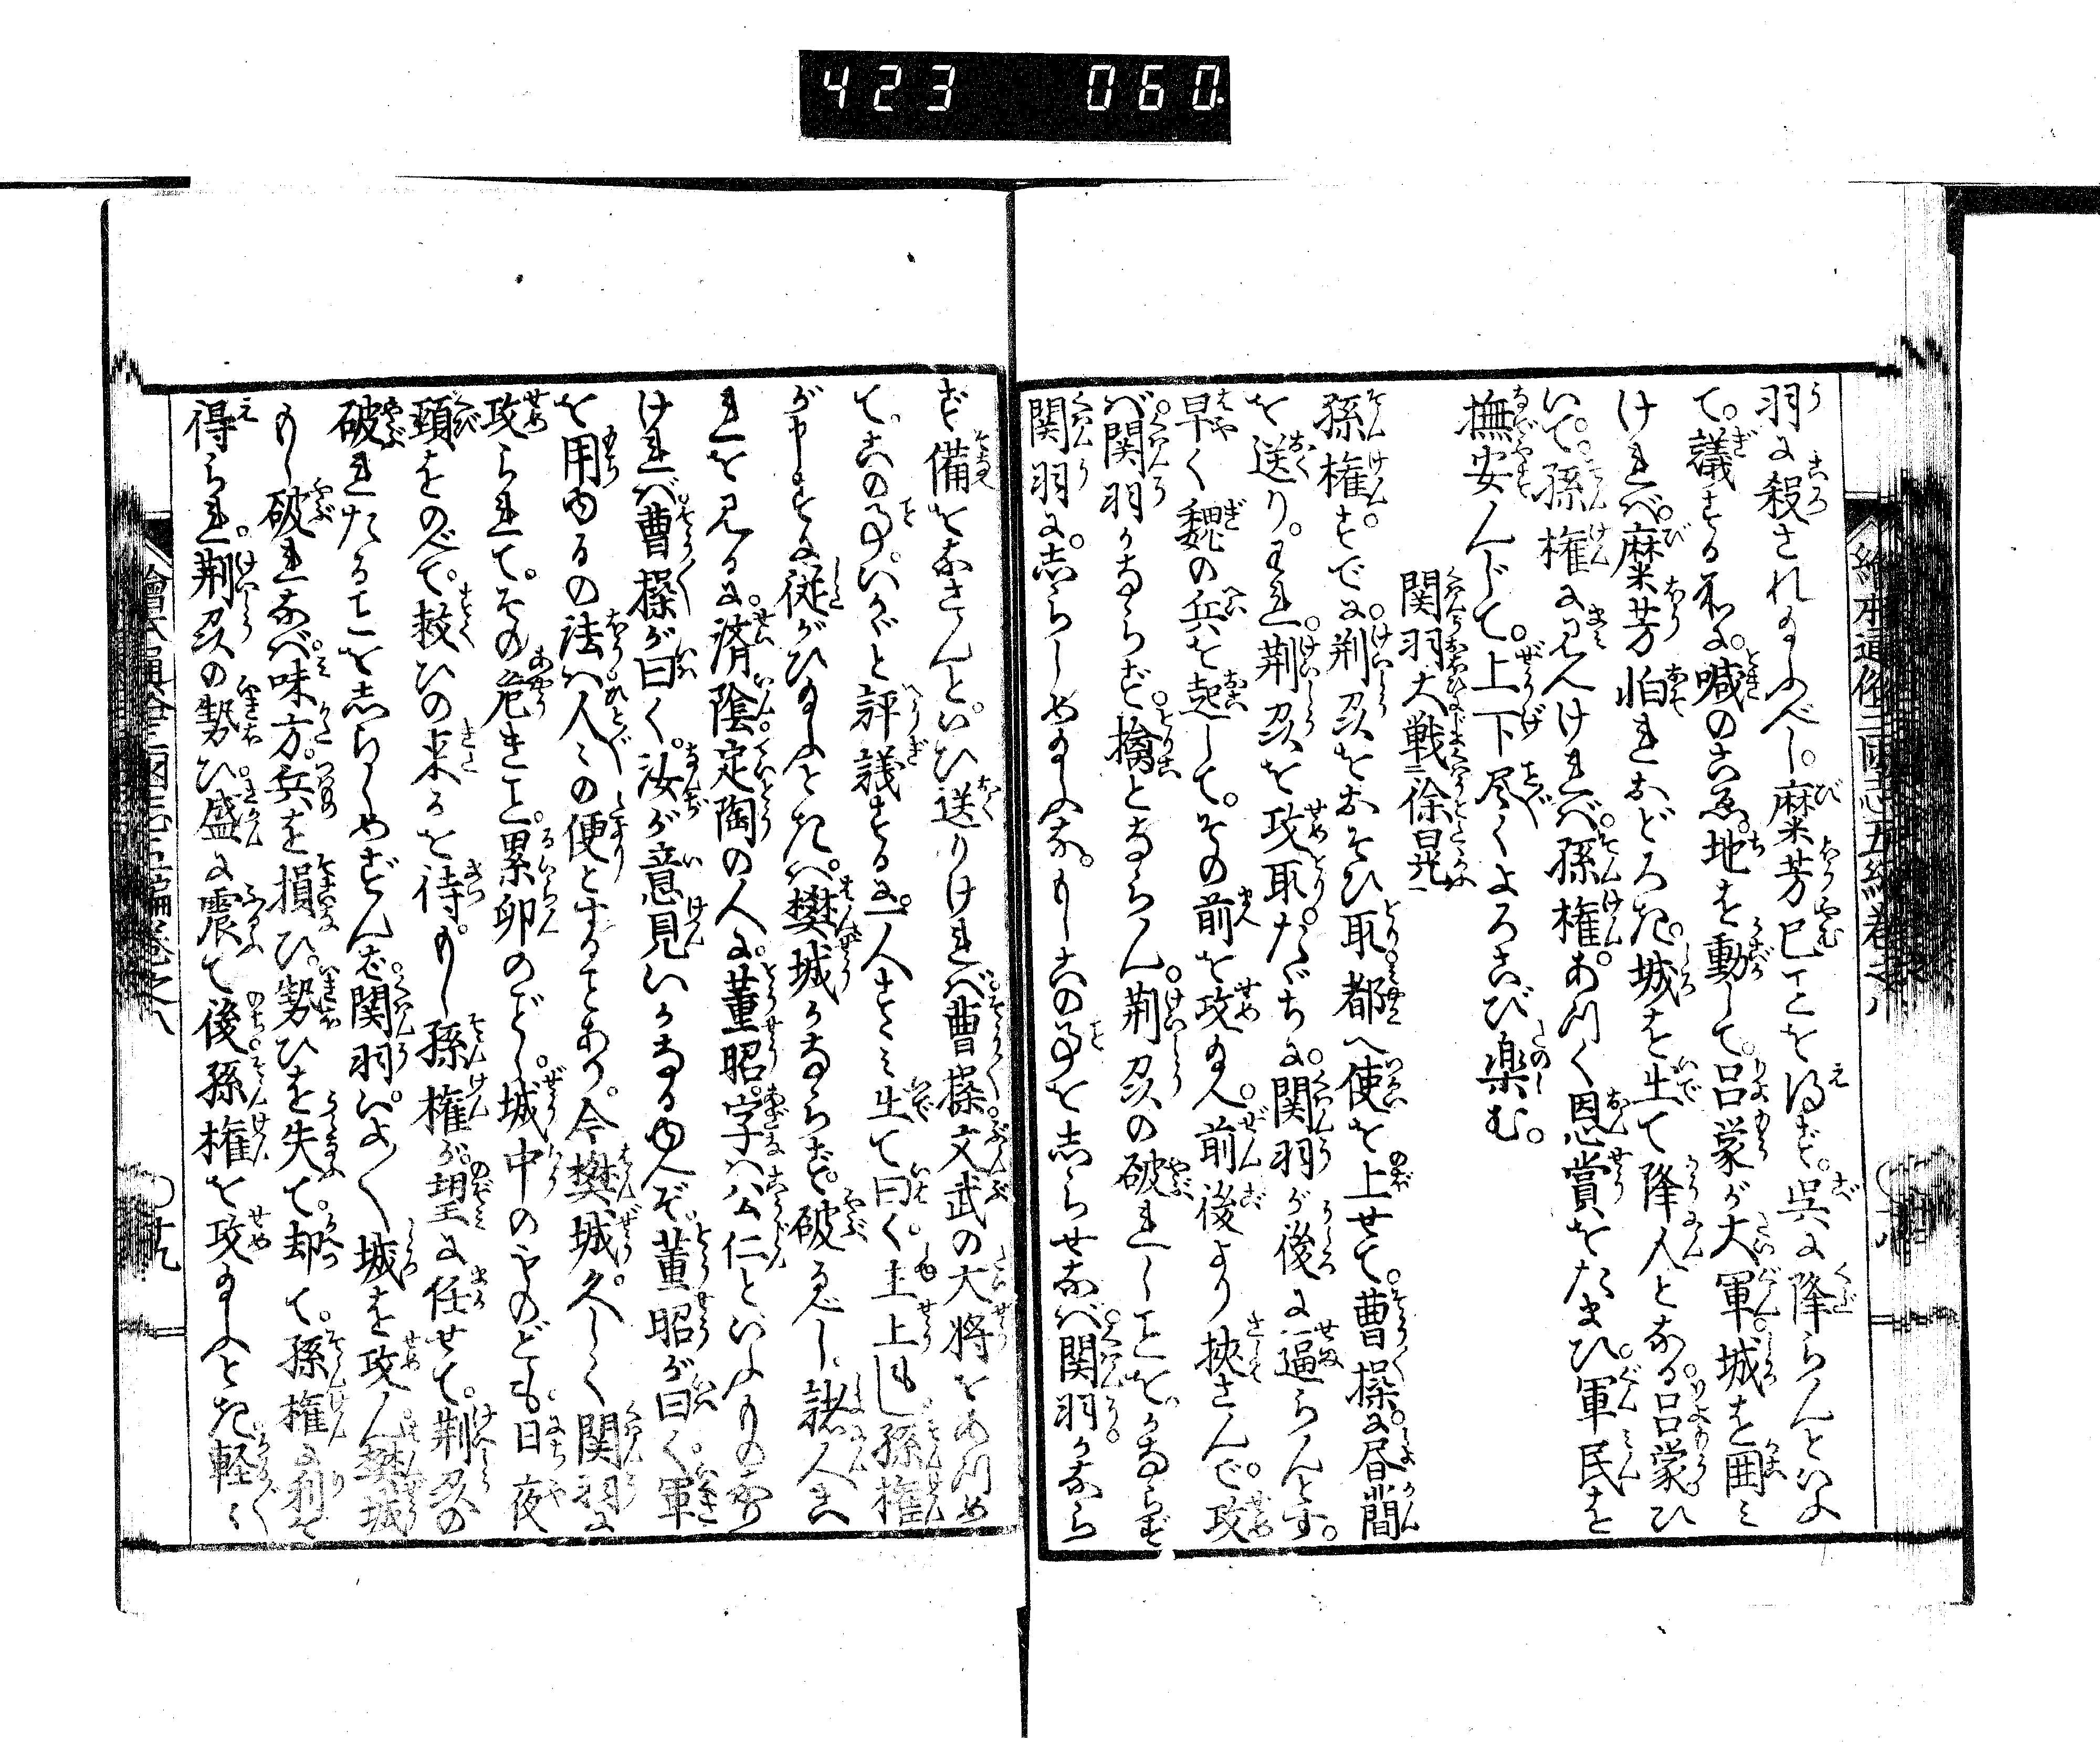 423 060
絵本通俗三国志五編巻之八
羽に殺され給ふべし。麋芳已ことを得ず。呉に降らんといふ
て。議する処に。喊のこゑ。地を動して。呂蒙が大軍。城を囲み
ければ。麋芳怕れおどろき。城を出て降人となる。呂蒙ひ
いて。孫権に見えければ。孫権。あつく恩賞をたまひ。軍民を
撫安んじて。上下尽くよろこび楽む。
関羽大戦二徐晃一
孫権。すでに。荊州をおそひ取。都へ使を上せて。曹操に昼間
を送り。われ。荊州を攻取。たゞちに。関羽が後に逼らんとす。
早く魏の兵を起して。その前を攻給へ。前後より挟さんで。攻
ば。関羽かならず。擒とならん。荊州の破れしことを。かならず
関羽に。志らしめ給ふな。もし此の事を志らせなば。関羽かなら
ず備をなさんと。いひ送りければ。曹操。文武の大将をあつめ
て。此の事。いかゞと評議するに。一人すゝみ出て曰く。主上もし孫権
が申すに従がひ給ふときは。樊城かならず。破るべし。諸人これ
れを見るに。済陰。定陶の人に。董昭。字は公仁といふもの也
ければ。曹操が曰く。汝が意見いかなるゆへぞ。董昭が曰く。軍
を用ゆるの法は人々の便とすることあり。今樊城。久しく関羽に
攻られて。その危きこと。累卵のごとし。城中のものども。日夜
頸をのべて。救ひの来るを待。もし孫権が。望に任せて。荊州の
破れたることを志らしめずんば。関羽。いよ〱城を攻ん。樊城
もし破れなば。味方。兵を損ひ。勢ひを失て。却て。孫権に利を
得られ。荊州の勢ひ。盛に震て。後孫権を攻給ふとき。軽々